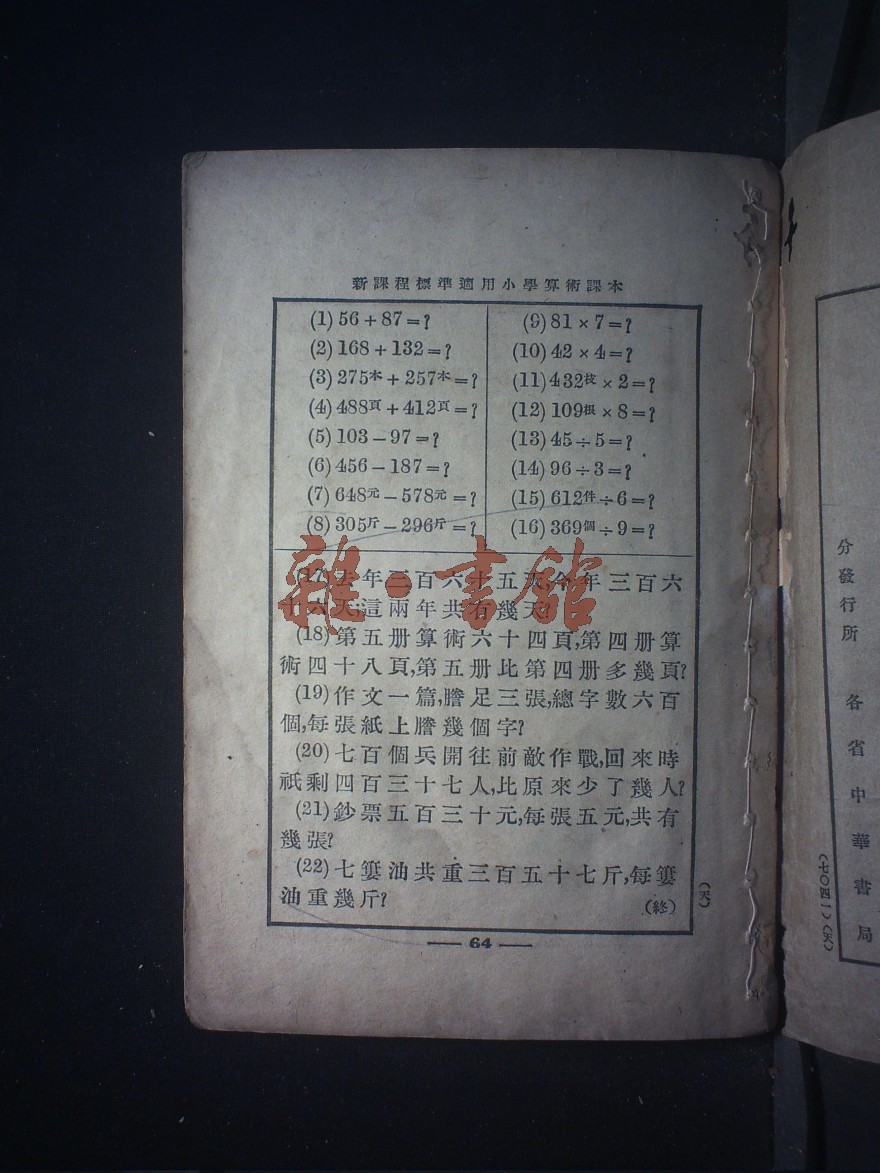 新課程標準適用小學算術課本
(1) 56 + 87 = ?
(2) 168 + 132 = ?
(3) 275本 + 257本 = ?
(4) 488頁 + 412頁 = ?
(5) 103 − 97 = ?
(6) 456 − 187 = ?
(7) 648元 − 578元 = ?
(8) 305斤 − 296斤 = ?
(9) 81 × 7 = ?
(10) 42 × 4 = ?
(11) 432枝 × 2 = ?
(12) 109根 × 8 = ?
(13) 45 ÷ 5 = ?
(14) 96 ÷ 3 = ?
(15) 612件 ÷ 6 = ?
(16) 369個 ÷ 9 = ?
(17) 去年三百六十五天,今年三百六
十六天;這兩年共有幾天?
(18) 第五册算術六十四頁,第四册算
術四十八頁,第五册比第四册多幾頁?
(19) 作文一篇,謄足三張,總字數六百
個,每張紙上謄幾個字?
(20) 七百個兵開往前敵作戰,回來時
祇剩四百三十七人,比原來少了幾人?
(21) 鈔票五百三十元,每張五元,共有
幾張?
(22) 七簍油共重三百五十七斤,每簍
油重幾斤?
(終)
(天)
— 64 —
雜·書館
分發行所
各省中華書局
(七〇四一)(天)